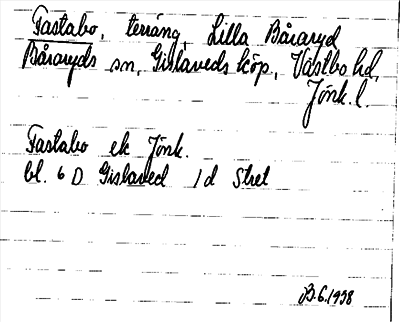 Fastabo, terräng, Lilla Båraryd
Båraryds sn, Gislaveds köp, Västbo hd,
Jönk. l.
Fastabo ek Jönk.
bl. 6 D Gislaved 1d Stret
B.6.1958